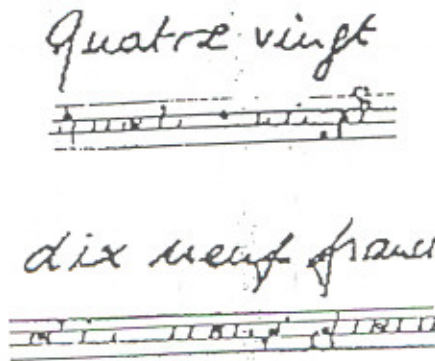 Quatre vingt
dix neuf franc